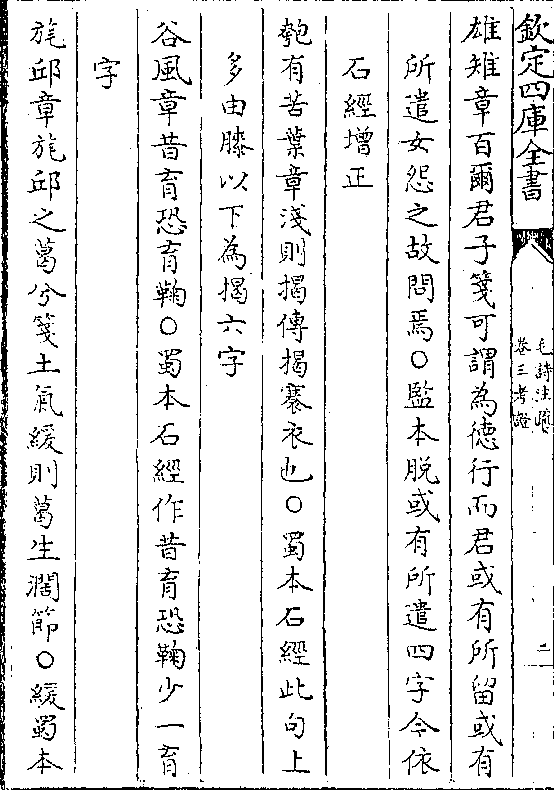 欽定四庫全書
毛詩注疏
卷三考證
二
雄雉章百爾君子箋可謂為徳行而君或有所留或有
所遣女怨之故問焉○監本脱或有所遣四字今依
石經增正
匏有苦葉章淺則揭傳揭褰衣也○蜀本石經此句上
多由膝以下為揭六字
谷風章昔育恐育鞠○蜀本石經作昔育恐鞠少一育
字
旄邱章旄邱之葛兮箋土氣緩則葛生濶節○緩蜀本